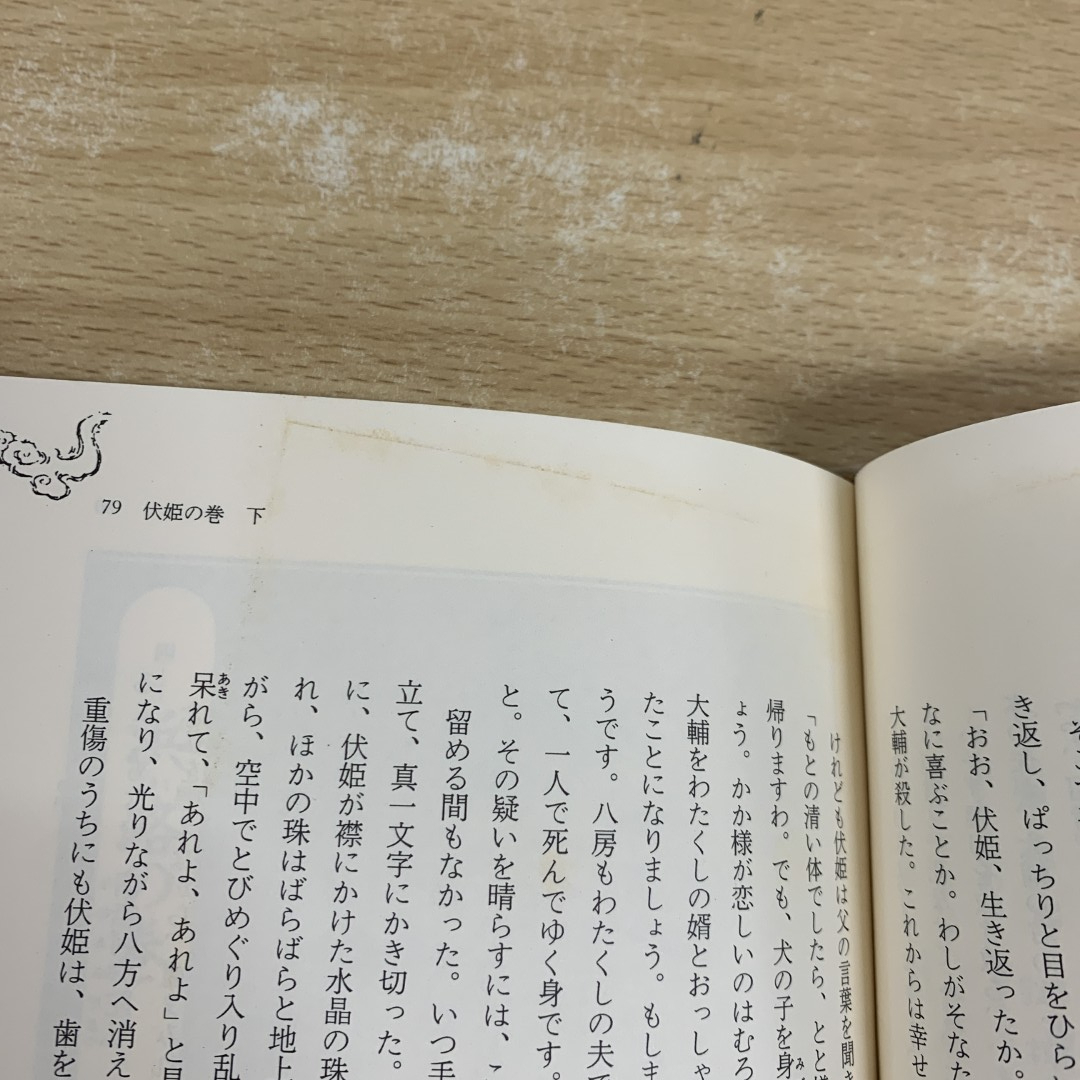 き返し、ぱっちりと目をひら
「おお、伏姫、生き返ったか。
なに喜ぶことか。わしがそなた
大輔が殺した。これからは幸せ
79 伏姫の巻 下
けれども伏姫は父の言葉を聞き
「もとの清い体でしたら、とと様
帰りますわ。でも、犬の子を身
ょう。かか様が恋しいのはむろ
大輔をわたくしの婿とおっしゃ
たことになりましょう。もしま
うです。八房もわたくしの夫で
て、一人で死んでゆく身です。
と。その疑いを晴らすには、こ
留める間もなかった。いつ手
立て、真一文字にかき切った。
に、伏姫が襟にかけた水晶の珠
れ、ほかの珠はばらばらと地上
がら、空中でとびめぐり入り乱
呆れて、「あれよ、あれよ」と見
になり、光りながら八方へ消え
重傷のうちにも伏姫は、歯を